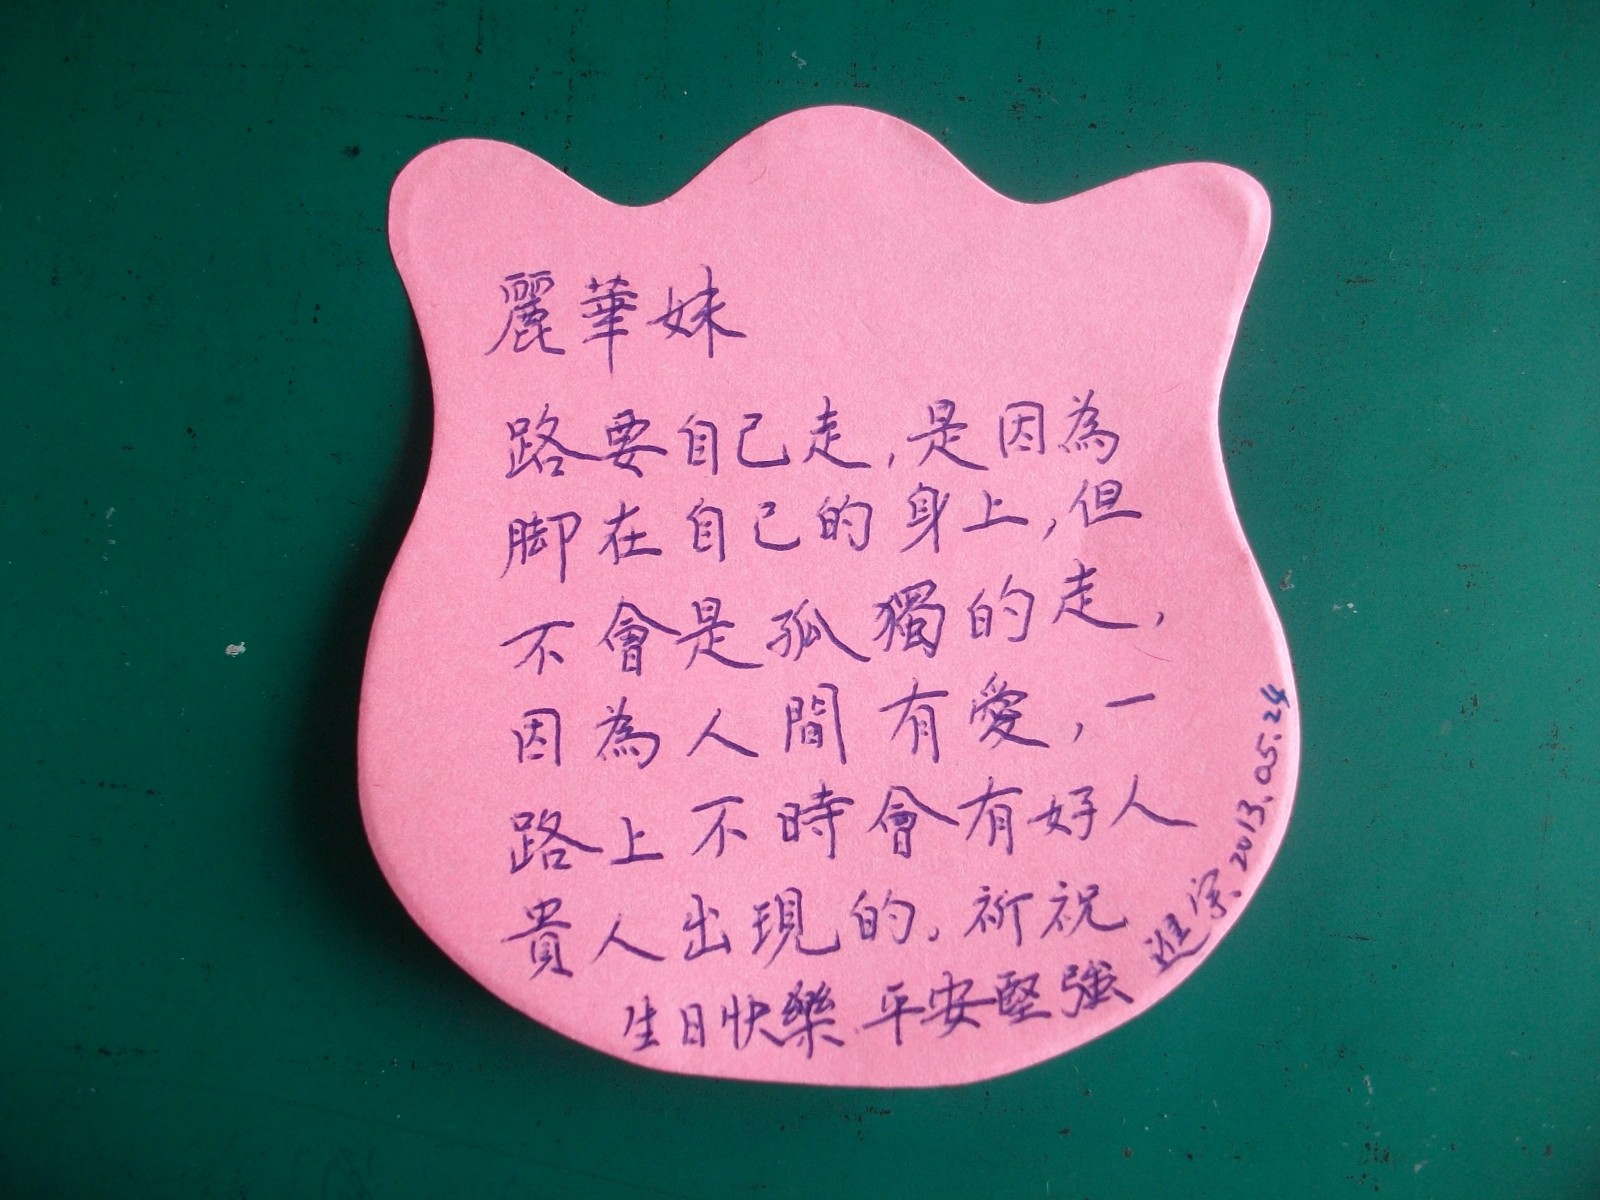 麗華妹
路要自己走,是因為
脚在自己的身上,但
不會是孤獨的走,
因為人間有愛,一
路上不時會有好人
貴人出現的.祈祝
生日快樂.平安堅強
進宗.2013.05.24